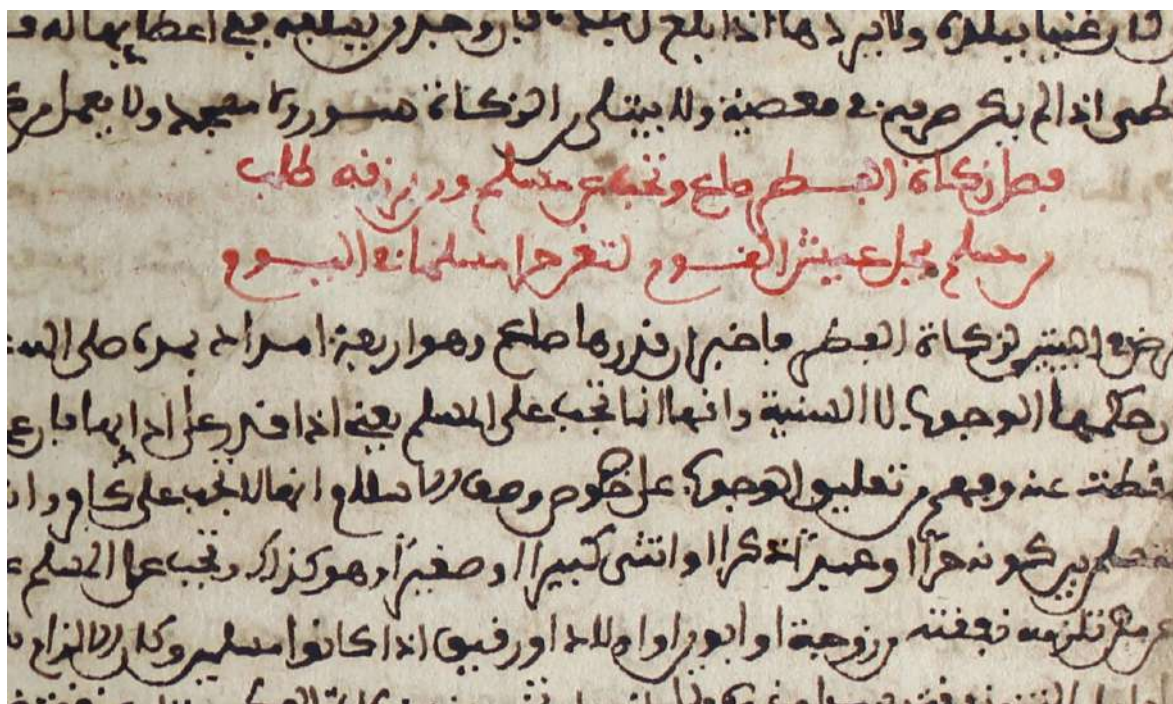 غنيا ببلده ولا يردها اذا بلغ لبلده فان وجد من يسلفه ففي اعطايها له
اذا لم يكن صرفه في معصية ولا يبنى من الزكاة سور ولا مسجد ولا يعمل
فصل زكاة الفطر صاع وتجب عن مسلم ومن برزقه طلب
من مسلم بجل عيش القوم لتغن حرا مسلما في اليوم
في البيتين لزكاة الفطر فاخبر ان قدرها صاع وهو اربعة امداد بمده صلى الله
وحكمها الوجوب لا السنية وانها انما تجب على المسلم يعني اذا قدر على ادايها فان
سقطت عنه وفهم من تعليق الوجوب على خصوص وصف الاسلام انها لا تجب على كافر
بين كونه حرا او عبدا ذكرا او انثى كبيرا او صغيرا وهو كذلك وتجب على المسلم
من تلزمه نفقته من زوجة او ابوين او اولاد او رقيق اذا كانوا مسلمين وكان